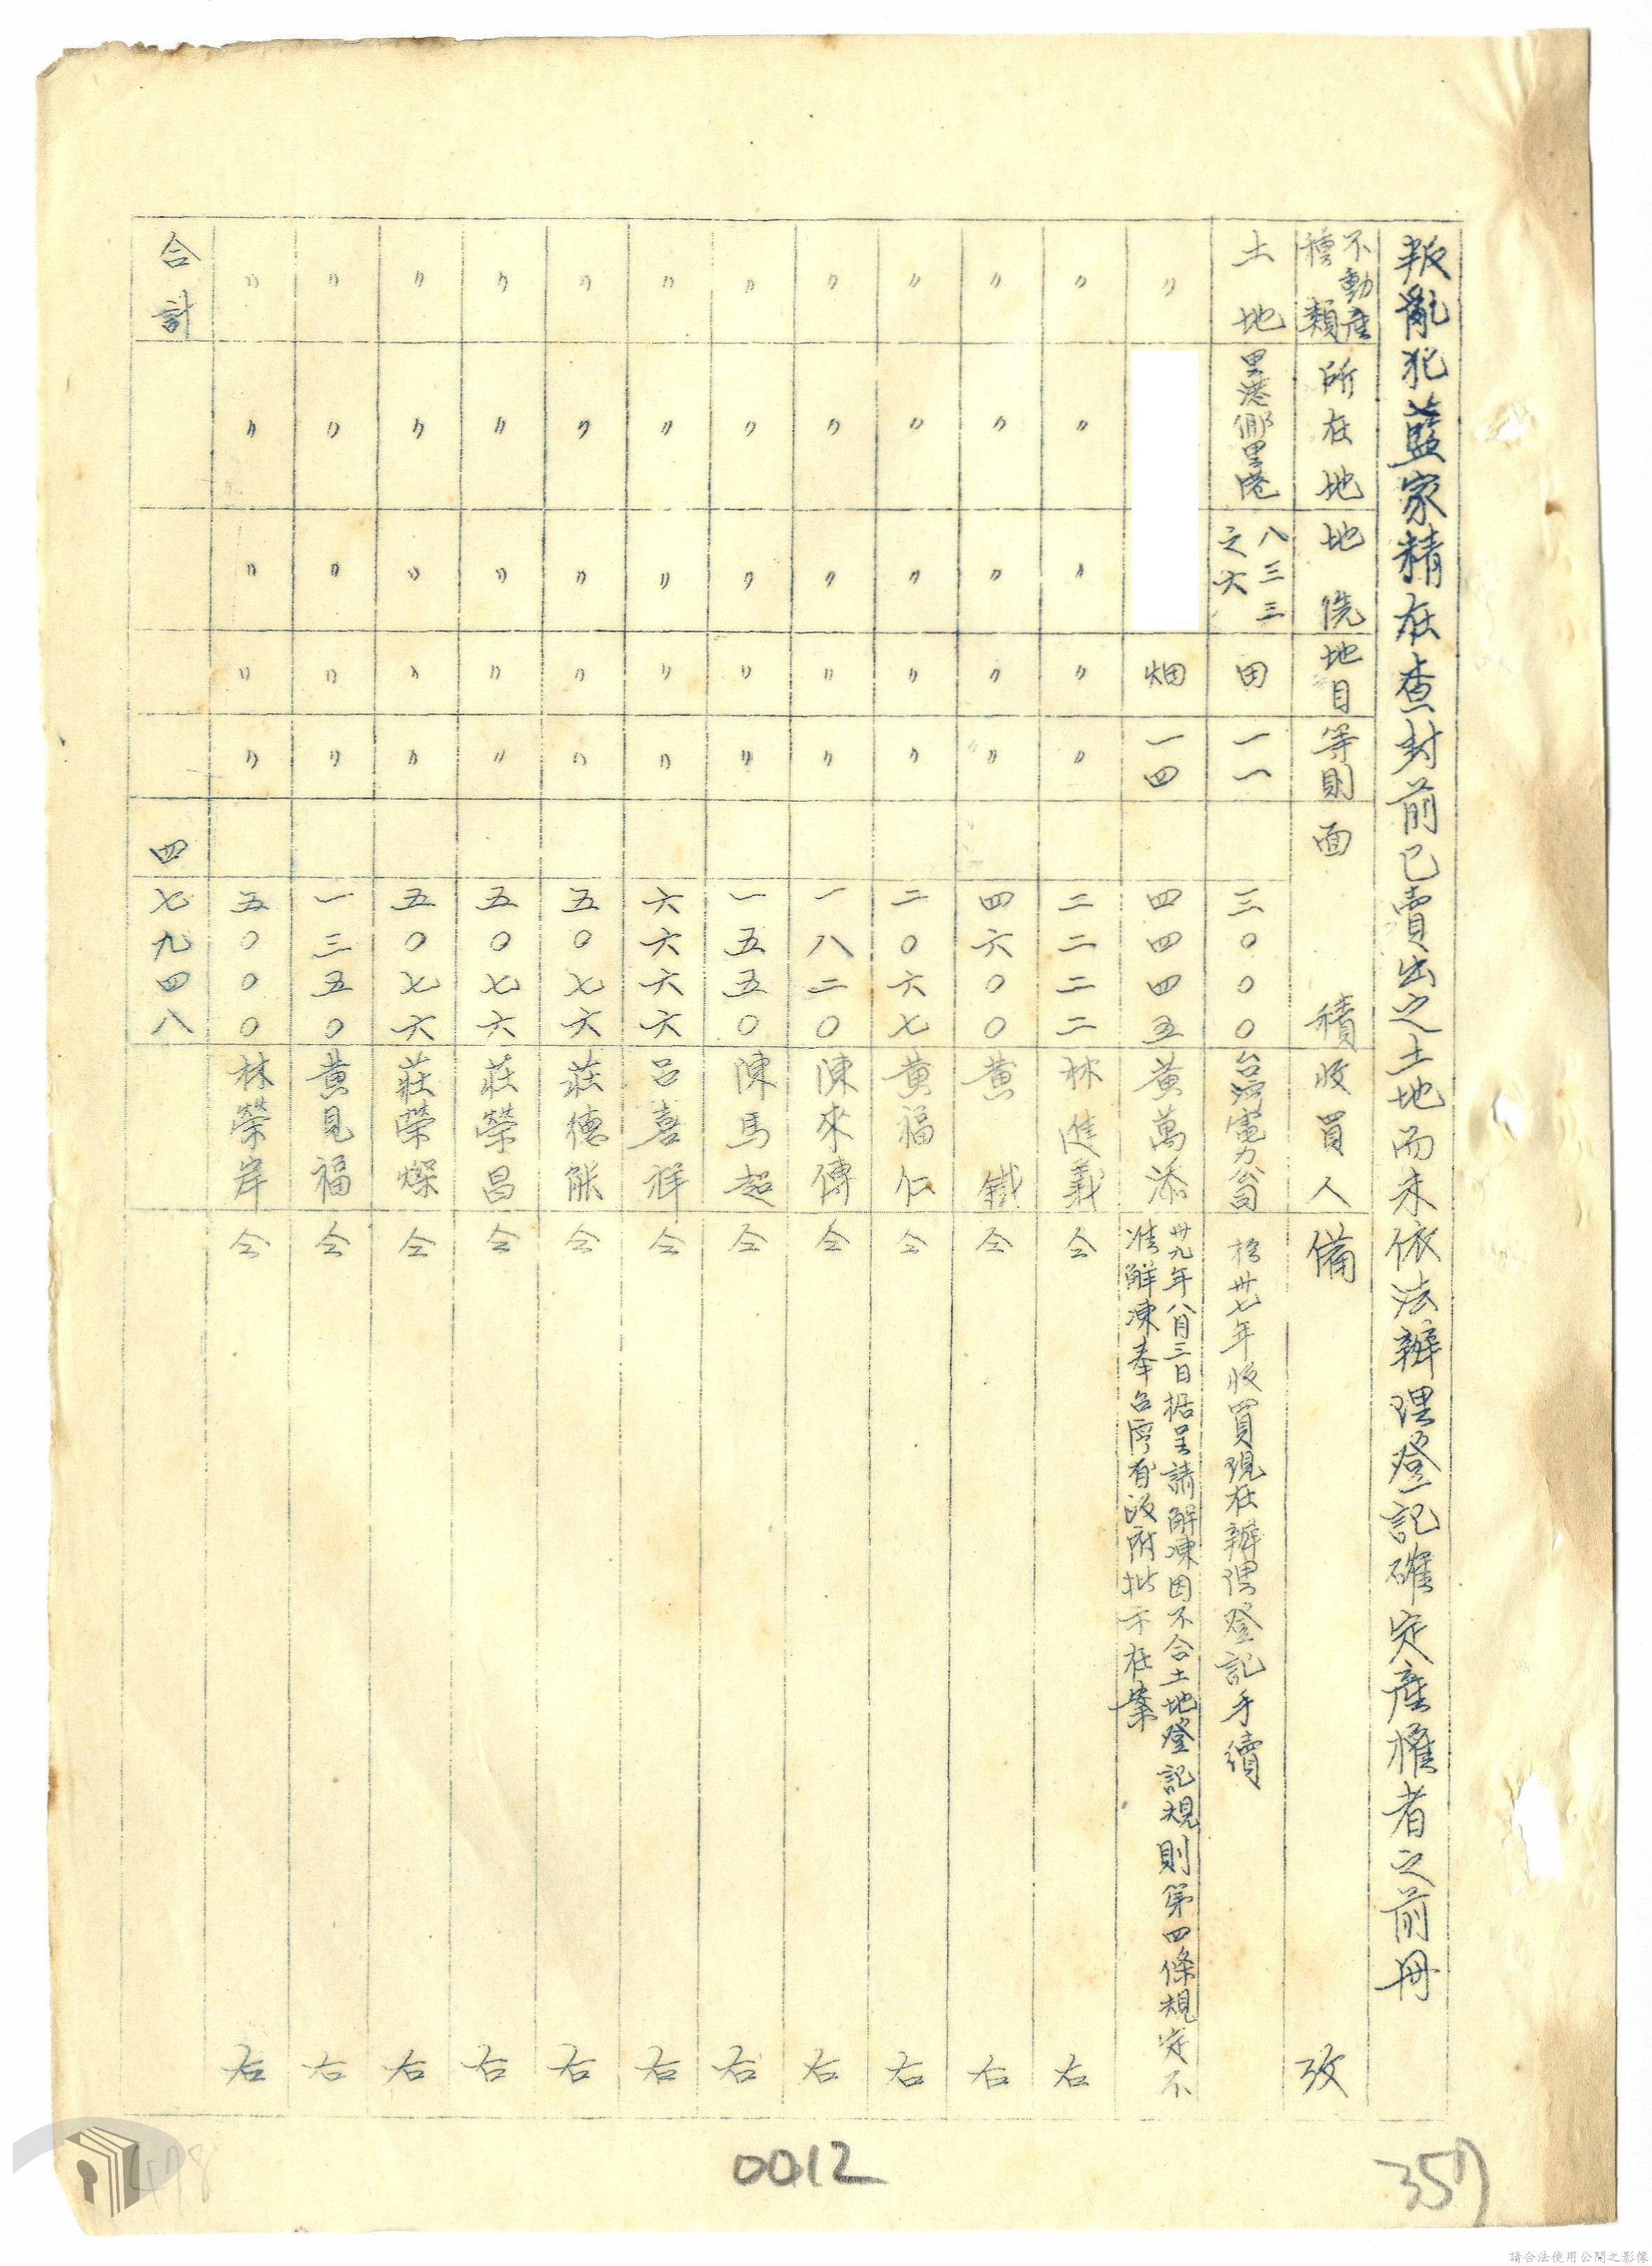 叛亂犯藍家精在查封前已賣出之土地而未依法辦理登記確定產權者之前冊
不動產種類 所在地 地 地目 等則 面積 收買人 備攷
土地 里港鄉里港 八三三之六 田 一一 三〇〇〇 台灣電力公司 於卅七年收買現在辦理登記手續
〃 畑 一四 四四四五 黃萬添 卅九年八月三日据呈請解凍因不合土地登記規則第四條規定不准解凍奉台灣省政府批示在案
〃 〃 〃 〃 〃 二二二二 林進義 仝右
〃 〃 〃 〃 〃 四六〇〇 黃鐵 仝右
〃 〃 〃 〃 〃 二〇六七 黃福仁 仝右
〃 〃 〃 〃 〃 一八二〇 陳來傳 仝右
〃 〃 〃 〃 〃 一五五〇 陳馬超 仝右
〃 〃 〃 〃 〃 六六六六 呂喜祥 仝右
〃 〃 〃 〃 〃 五〇七六 莊德能 仝右
〃 〃 〃 〃 〃 五〇七六 莊榮昌 仝右
〃 〃 〃 〃 〃 五〇七六 莊榮燦 仝右
〃 〃 〃 〃 〃 一三五〇 黃見福 仝右
〃 〃 〃 〃 〃 五〇〇〇 林榮岸 仝右
合計 四七九四八
0012
357
478
請合法使用公開之影像